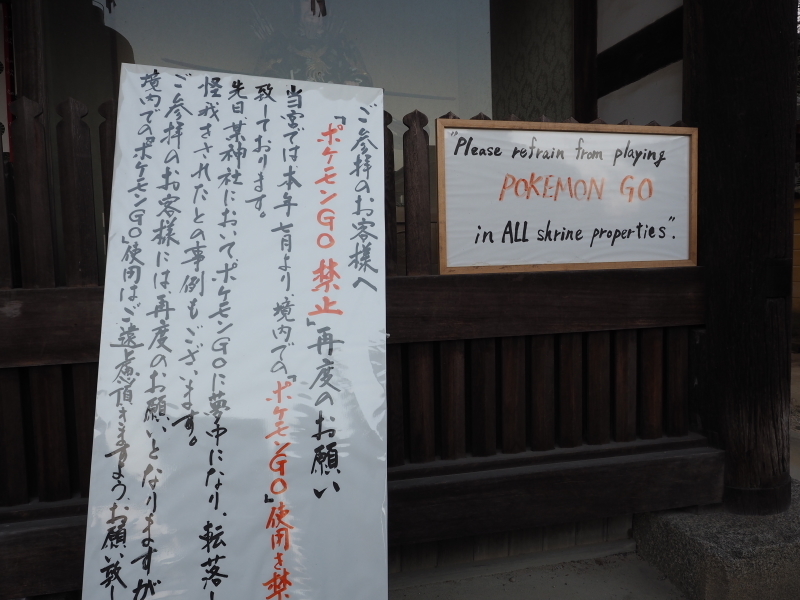 ご参拝のお客様へ
「ポケモンGO 禁止」再度のお願い
当宮では、本年七月より、境内での「ポケモンGO」使用を禁
致しております。
先日某神社においてポケモンGOに夢中になり、転落し
怪我をされたとの事例もございます。
ご参拝のお客様には、再度のお願いとなりますが
境内での「ポケモンGO」使用はご遠慮頂きますようお願い致し
"Please refrain from playing
POKEMON GO
in ALL shrine properties".